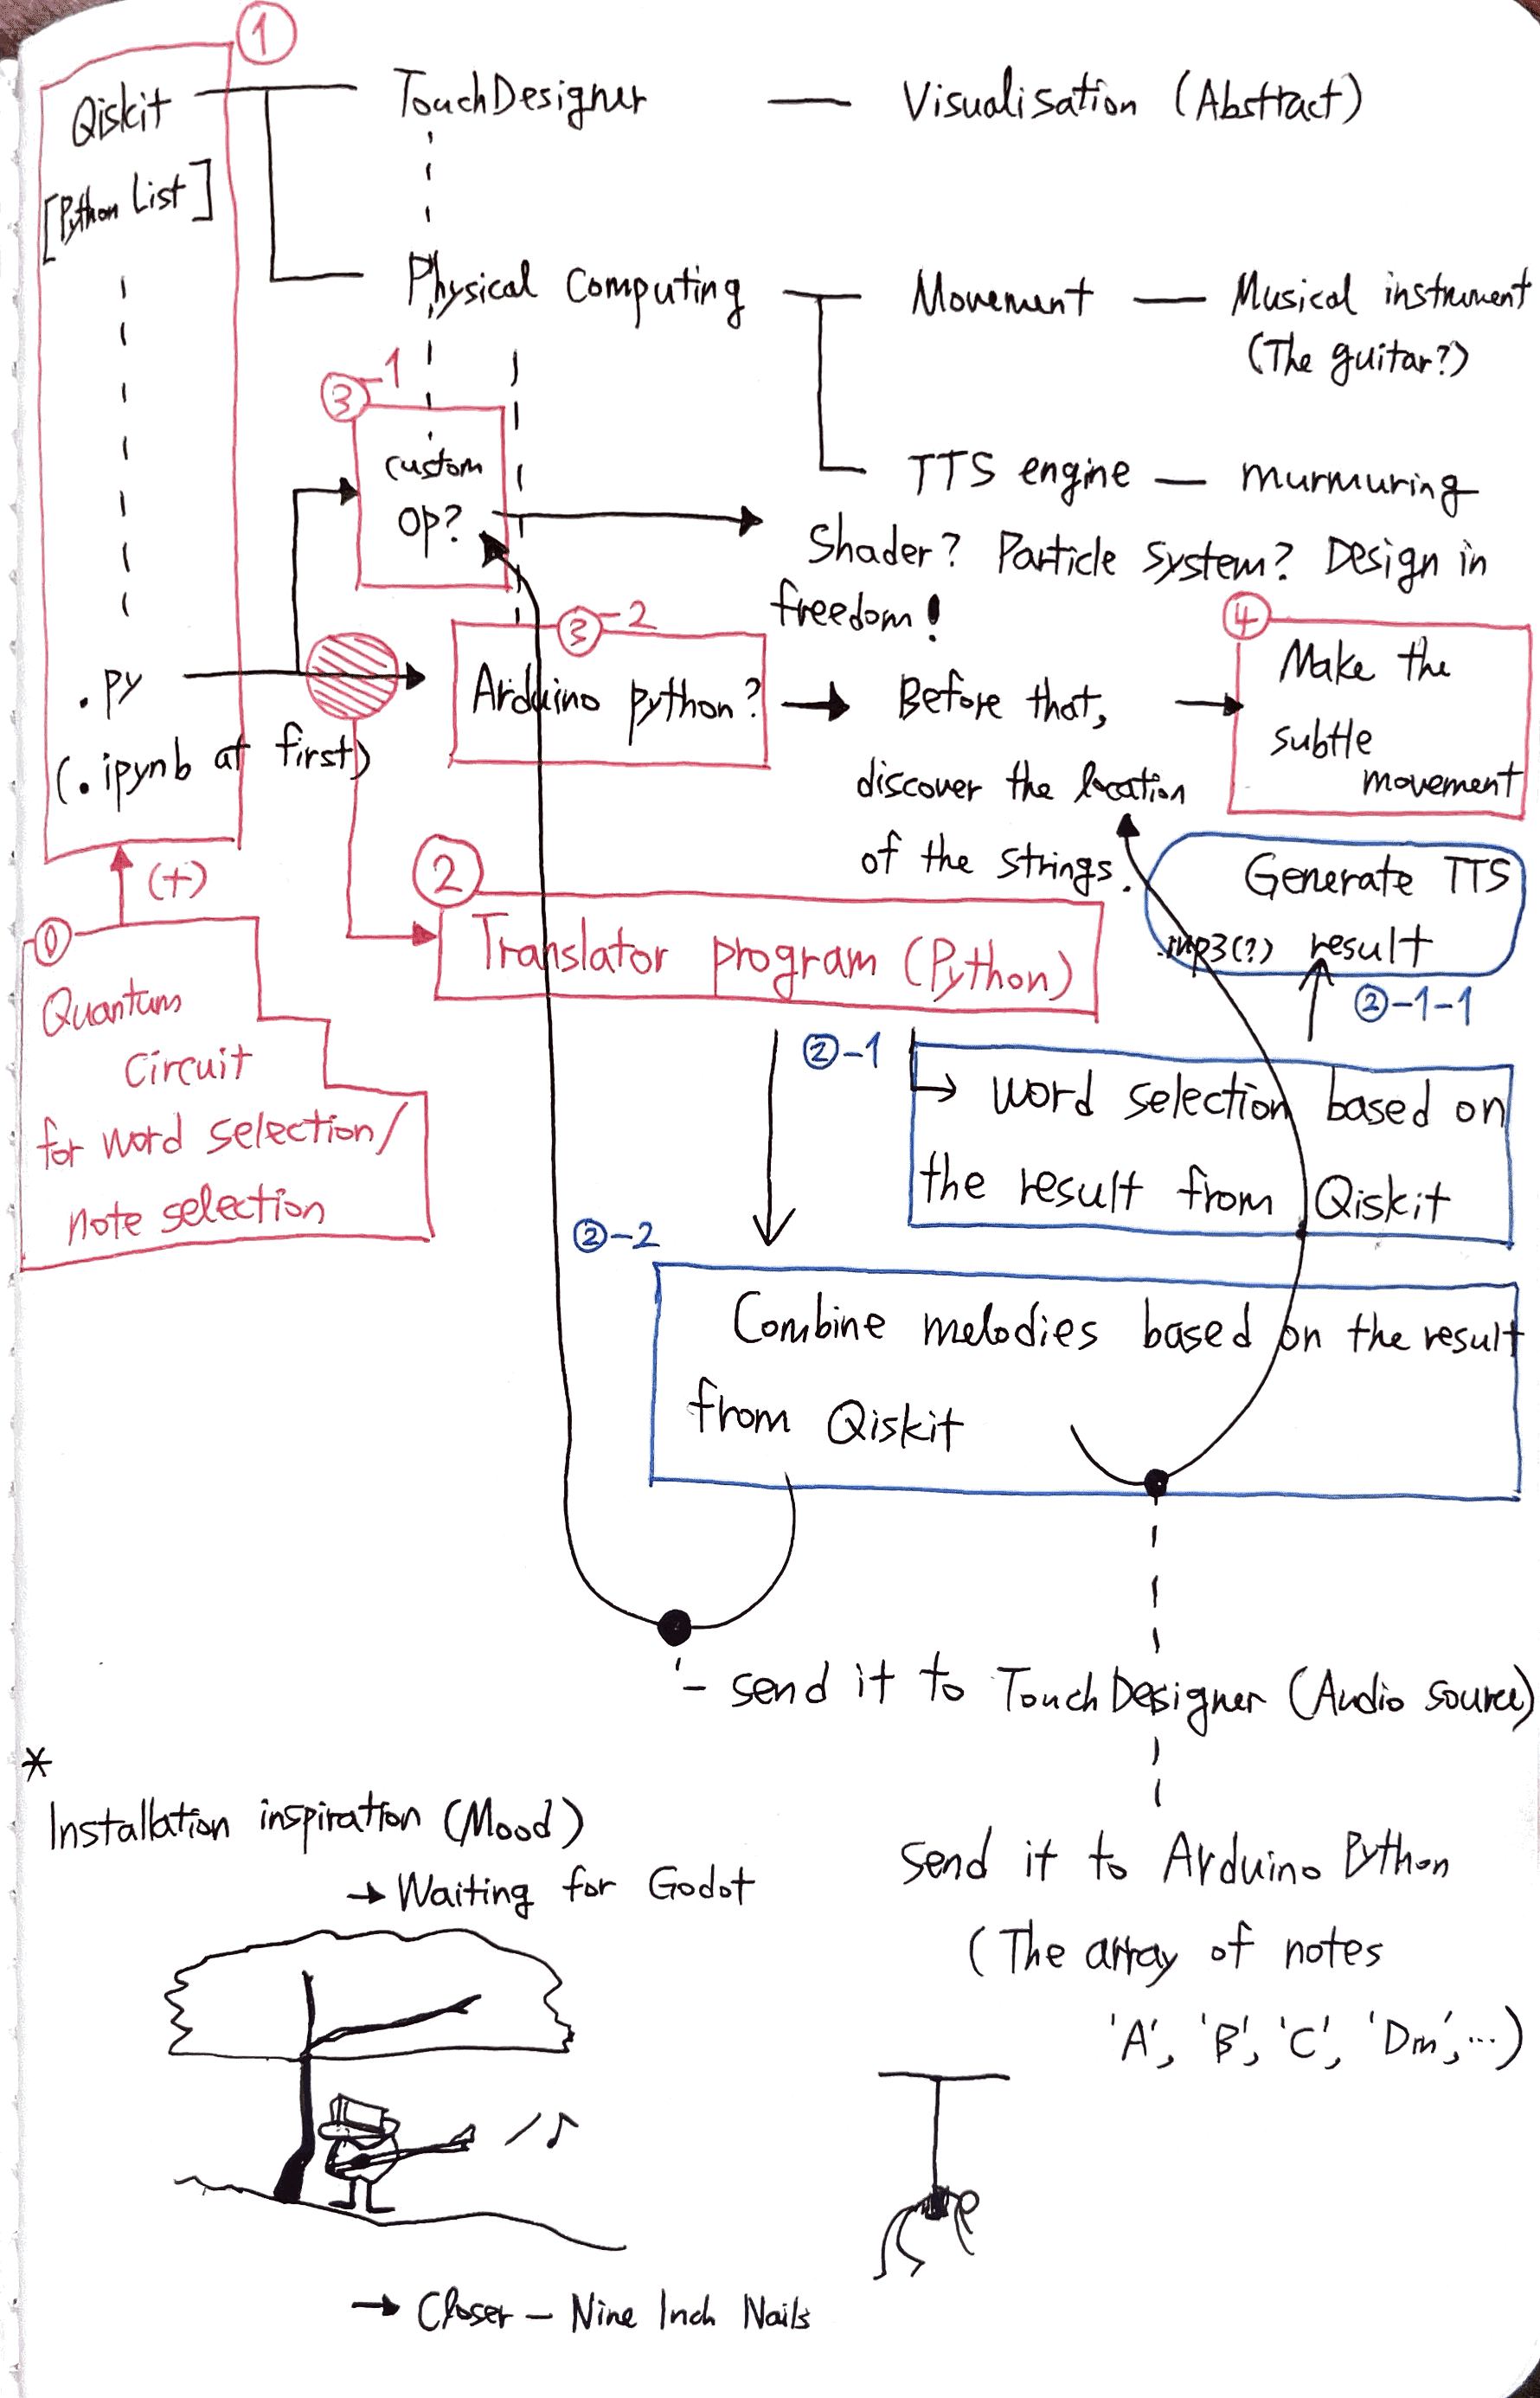 ①
Qiskit
[Python List]
TouchDesigner — Visualisation (Abstract)
Physical Computing
Movement — Musical instrument
(The guitar?)
TTS engine — murmuring
③-1
custom
OP?
Shader? Particle System? Design in
freedom!
.py
(.ipynb at first)
③-2
Arduino python?
Before that,
discover the location
of the strings.
④
Make the
subtle
movement
(+)
⓪
Quantum
Circuit
for word selection/
note selection
②
Translator program (Python)
Generate TTS
.mp3(?) result
②-1-1
②-1
word selection based on
the result from Qiskit
②-2
Combine melodies based on the result
from Qiskit
- send it to TouchDesigner (Audio source)
send it to Arduino Python
(The array of notes
'A', 'B', 'C', 'Dm', ...)
*
Installation inspiration (Mood)
→ Waiting for Godot
→ Closer – Nine Inch Nails